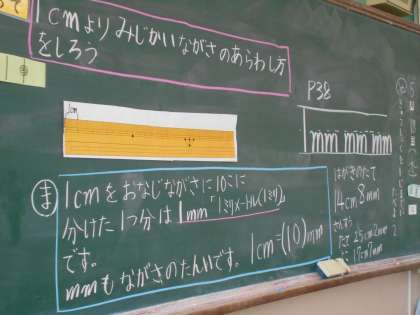 1cmよりみじかいながさのあらわし方
をしろう
1cm
P38
mm mm mm
ま 1cmをおなじながさに10こに
分けた1つ分は1mm「1ミリメートル(1ミリ)」
です。
mmもながさのたんいです。 1cm=(10)mm
はがきのたて
14cm8mm
たて 25cm2mm
よこ 17cm7mm